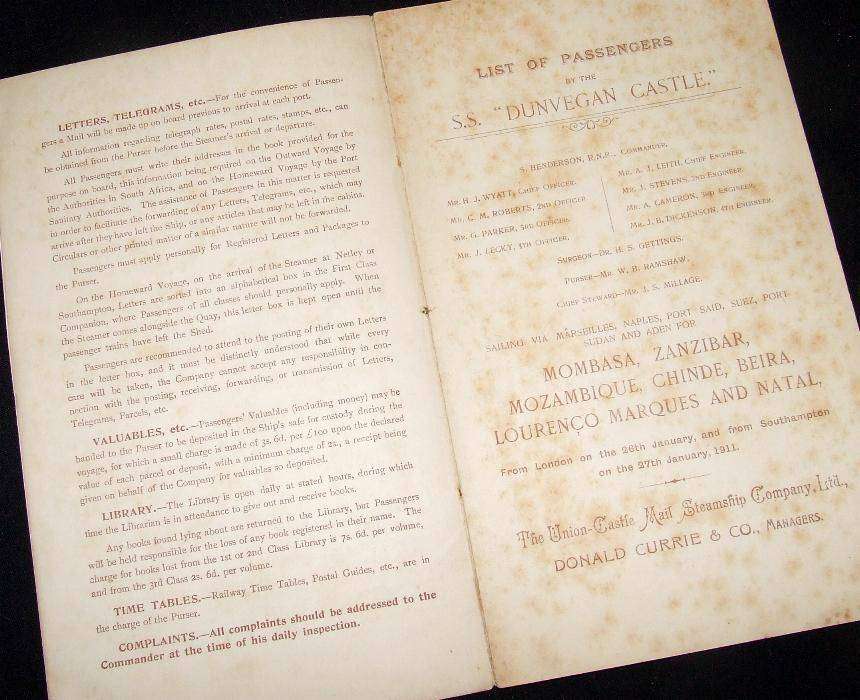 LETTERS, TELEGRAMS, etc.—For the convenience of Passen-
gers a Mail will be made up on board previous to arrival at each port.
All information regarding telegraph rates, postal rates, stamps, etc., can
be obtained from the Purser before the Steamer's arrival or departure.
All Passengers must write their addresses in the book provided for the
purpose on board, this information being required on the Outward Voyage by
the Authorities in South Africa, and on the Homeward Voyage by the Port
Sanitary Authorities. The assistance of Passengers in this matter is requested
in order to facilitate the forwarding of any Letters, Telegrams, etc., which may
arrive after they have left the Ship, or any articles that may be left in the cabins.
Circulars or other printed matter of a similar nature will not be forwarded.
Passengers must apply personally for Registered Letters and Packages to
the Purser.
On the Homeward Voyage, on the arrival of the Steamer at Netley or
Southampton, Letters are sorted into an alphabetical box in the First Class
Companion, where Passengers of all classes should personally apply. When
the Steamer comes alongside the Quay, this letter box is kept open until the
passenger trains have left the Shed.
Passengers are recommended to attend to the posting of their own Letters
in the letter box, and it must be distinctly understood that while every
care will be taken, the Company cannot accept any responsibility in con-
nection with the posting, receiving, forwarding, or transmission of Letters,
Telegrams, Parcels, etc.
VALUABLES, etc.—Passengers' Valuables (including money) may be
handed to the Purser to be deposited in the Ship's safe for custody during the
voyage, for which a small charge is made of 3s. 6d. per £100 upon the declared
value of each parcel or deposit, with a minimum charge of 2s., a receipt being
given on behalf of the Company for valuables so deposited.
LIBRARY.—The Library is open daily at stated hours, during which
time the Librarian is in attendance to give out and receive books.
Any books found lying about are returned to the Library, but Passengers
will be held responsible for the loss of any book registered in their name. The
charge for books lost from the 1st or 2nd Class Library is 7s. 6d. per volume,
and from the 3rd Class 2s. 6d. per volume.
TIME TABLES.—Railway Time Tables, Postal Guides, etc., are in
the charge of the Purser.
COMPLAINTS.—All complaints should be addressed to the
Commander at the time of his daily inspection.
LIST OF PASSENGERS
BY THE
S.S. "DUNVEGAN CASTLE."
S. HENDERSON, R.N.R., COMMANDER.
MR. H. J. WYATT, CHIEF OFFICER.
MR. C. M. ROBERTS, 2ND OFFICER
MR. G. PARKER, 3RD OFFICER.
MR. J. LECKY, 4TH OFFICER.
MR. A. J. LEITH, CHIEF ENGINEER.
MR. J. STEVENS, 2ND ENGINEER.
MR. A. CAMERON, 3RD ENGINEER.
MR. J. B. DICKENSON, 4TH ENGINEER.
SURGEON—DR. H. S. GETTINGS.
PURSER—MR. W. B. RAMSHAW.
CHIEF STEWARD—MR. J. S. MILLAGE.
SAILING VIA MARSEILLES, NAPLES, PORT SAID, SUEZ, PORT
SUDAN AND ADEN FOR
MOMBASA, ZANZIBAR,
MOZAMBIQUE, CHINDE, BEIRA,
LOURENÇO MARQUES AND NATAL,
From London on the 26th January, and from Southampton
on the 27th January, 1911.
The Union-Castle Mail Steamship Company, Ltd.,
DONALD CURRIE & CO., MANAGERS.